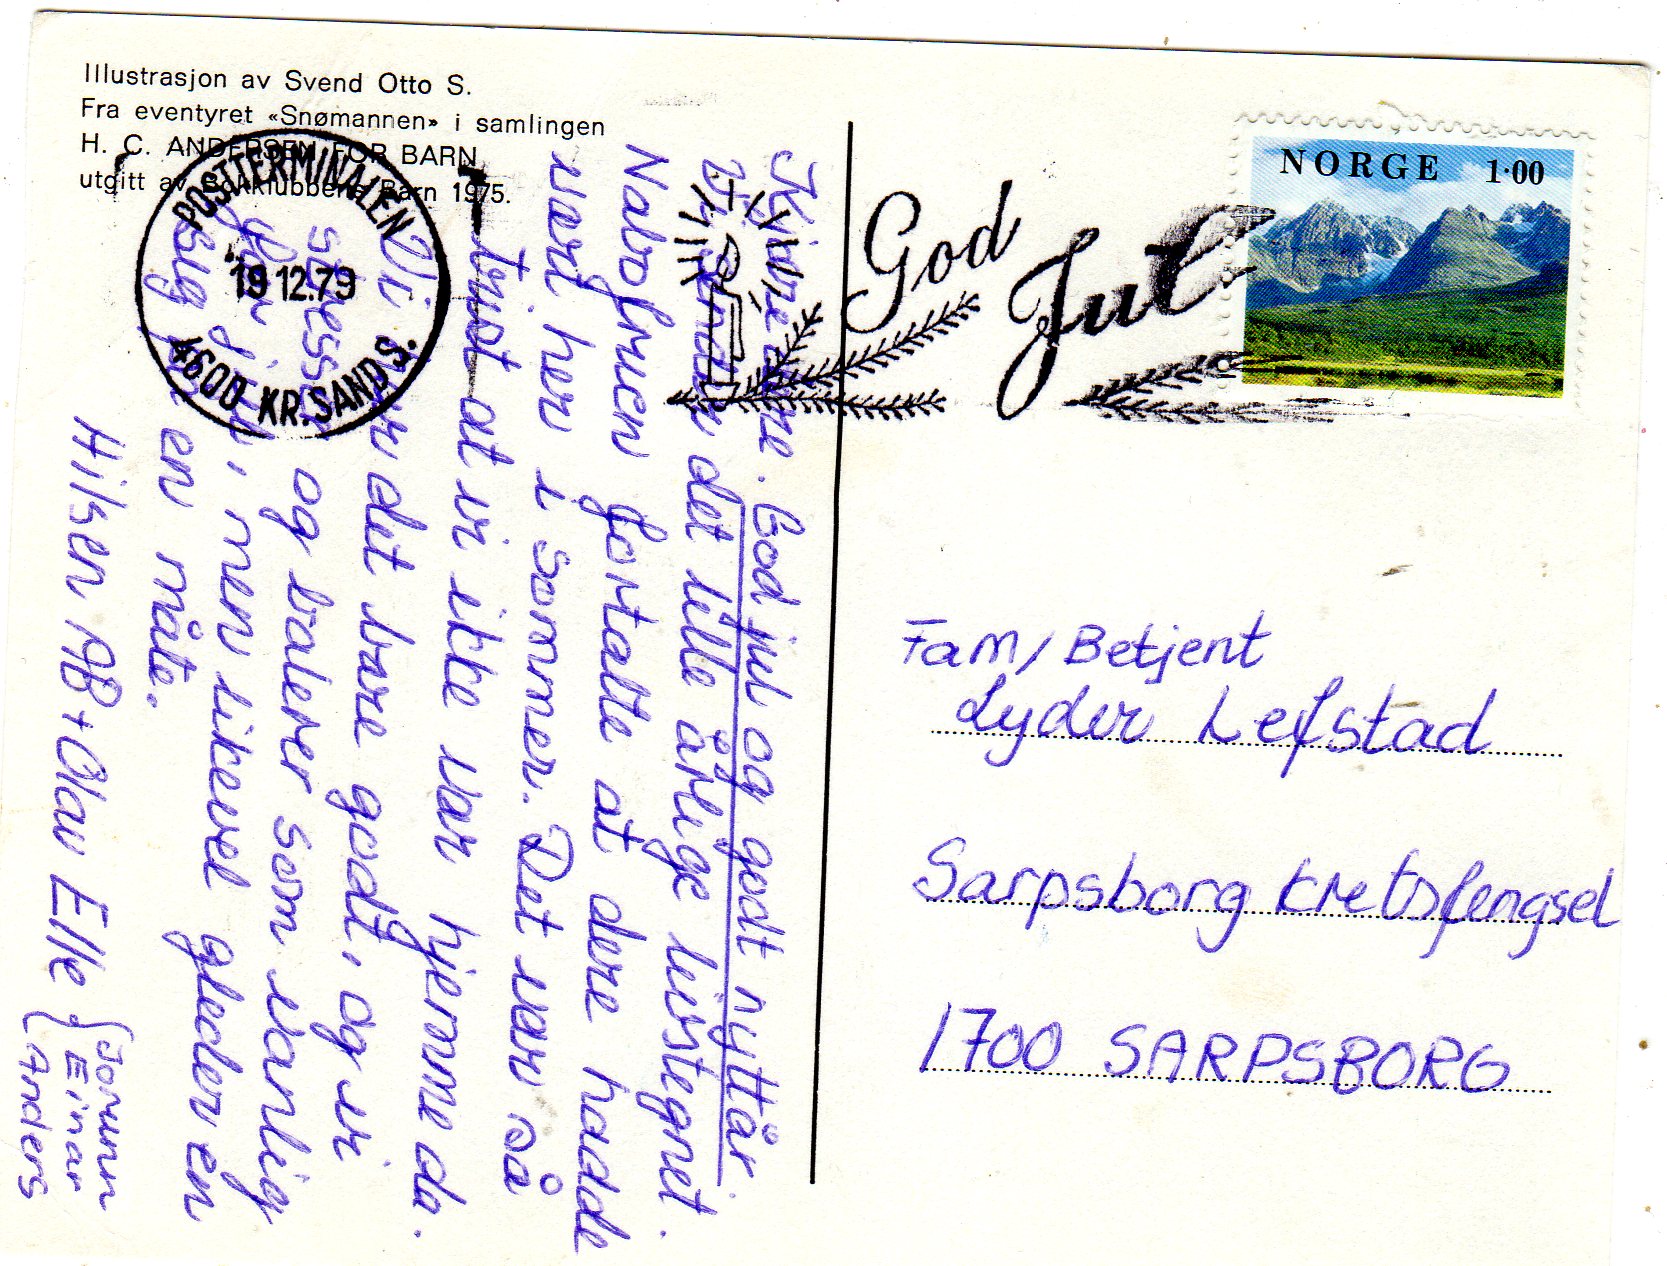 Illustrasjon av Svend Otto S.
Fra eventyret «Snømannen» i samlingen
H. C. ANDERSEN FOR BARN
utgitt av Bokklubbens Barn 1975.
POSTTERMINALEN
19 12.79
4600 KR.SAND S.
God Jul
NORGE 1·00
Kjære dere. God jul og godt nyttår.
Vi sender det lille årlige livstegnet.
Nabofruen fortalte at dere hadde
vært her i sommer. Det var så
trist at vi ikke var hjemme da.
Vi har det bare godt, og vi
stresser og baler som vanlig
før jul, men likevel gleder en
seg på en måte.
Hilsen AB+Olav Elle {
Jorunn
Einar
Anders
Fam/ Betjent
Lyder Lefstad
Sarpsborg Kretsfengsel
1700 SARPSBORG